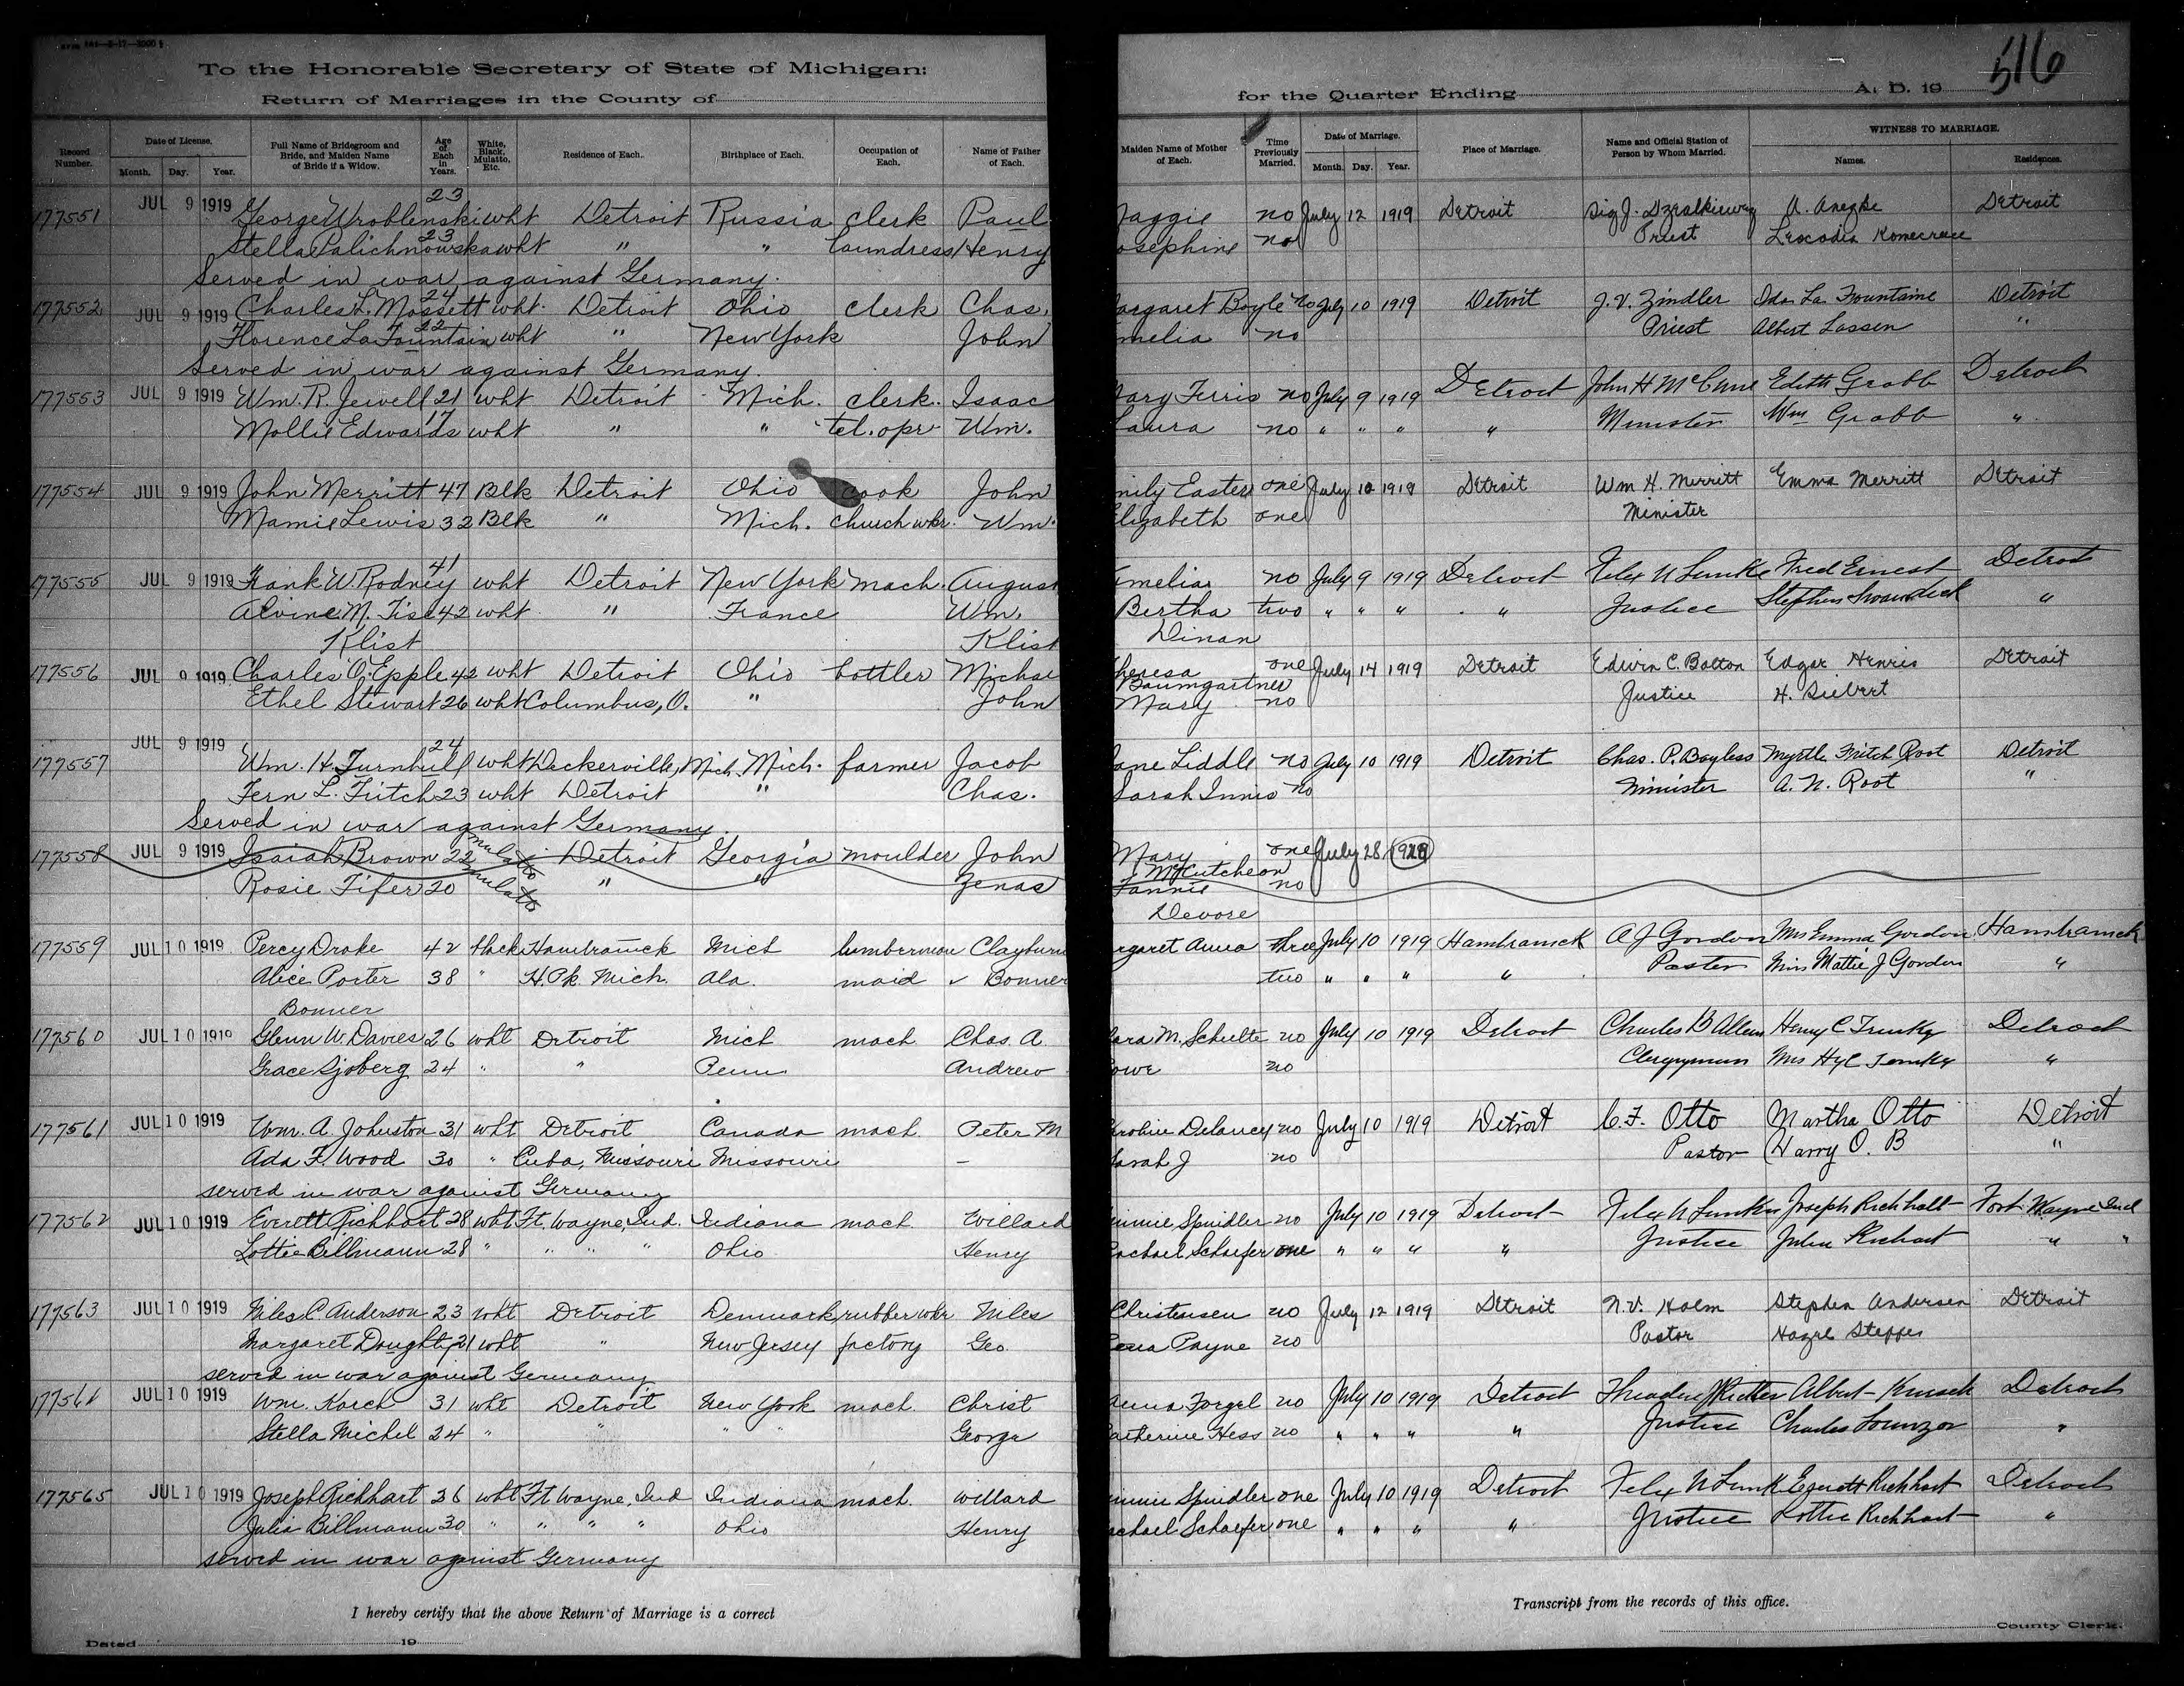 To the Honorable Secretary of State of Michigan:
Return of Marriages in the County of
for the Quarter Ending A. D. 19 516
Record Number. Date of License. Month. Day. Year. Full Name of Bridegroom and Bride, and Maiden Name of Bride if a Widow. Age of Each in Years. White, Black, Mulatto, Etc. Residence of Each. Birthplace of Each. Occupation of Each. Name of Father of Each. Maiden Name of Mother of Each. Time Previously Married. Date of Marriage. Month. Day. Year. Place of Marriage. Name and Official Station of Person by Whom Married. WITNESS TO MARRIAGE. Names. Residences.
177551 JUL 9 1919 George Wroblenski 23 wht Detroit Russia clerk Paul Maggie no July 12 1919 Detroit Sig J. Priest Detroit
Stella Palichnowska 23 wht " " laundress Henry Josephine no Leocadia
Served in war against Germany.
177552 JUL 9 1919 Charles L. Mossett 24 wht. Detroit Ohio clerk Chas. argaret Boyle no July 10 1919 Detroit J. V. Zindler Ida La Fountaine Detroit
Florence La Fountain 22 wht " New York John melia no Priest Albert Lassen "
Served in war against Germany.
177553 JUL 9 1919 Wm. R. Jewell 21 wht Detroit Mich. clerk. Isaac Mary Ferris no July 9 1919 Detroit John H McCune Edith Grabb Detroit
Mollie Edwards 17 wht " " tel. opr Wm. Laura no " " " " Minister Wm Grabb "
177554 JUL 9 1919 John Merritt 47 Blk Detroit Ohio cook John mily Easter one July 10 1919 Detroit Wm H. Merritt Emma Merritt Detroit
Mamie Lewis 32 Blk " Mich. church wkr. Wm. Elizabeth one Minister
177555 JUL 9 1919 Frank W. Rodney 41 wht Detroit New York mach. August Amelia no July 9 1919 Detroit Felex N Lemke Fred Ernest Detroit
Alvine M. Tise 42 wht " France Wm. Bertha two " " " " Justice Stephen "
Klist Klist Dinan
177556 JUL 9 1919 Charles O. Epple 42 wht Detroit Ohio bottler Michae heresa Baumgartner one July 14 1919 Detroit Edwin C. Bolton Edgar Henris Detroit
Ethel Stewart 26 wht Columbus, O. " John Mary no Justice H. Siebert
177557 JUL 9 1919 Wm. H. Turnbull 24 wht Deckerville, Mich. Mich. farmer Jacob Jane Liddle no July 10 1919 Detroit Chas. P. Bayless Myrtle Fritch Root Detroit
Fern L. Fritch 23 wht Detroit " Chas. Sarah Innis no Minister A. N. Root "
Served in war against Germany.
177558 JUL 9 1919 Isaiah Brown 22 mulatto Detroit Georgia moulder John Mary McCutcheon one July 28
Rosie Fifer 20 mulatto " " Zenas Fannie no
Devore
177559 JUL 10 1919 Percy Drake 42 black Hamtramck Mich lumberman Clayburn rgaret Anna three July 10 1919 Hamtramck A J Gordon Mrs Emma Gordon Hamtramck
Alice Porter 38 " H. Pk. Mich. Ala. maid Bonner two " " " " Pastor Miss Mattie J Gordon "
Bonner
177560 JUL 10 1919 Glenn W. Davies 26 wht Detroit Mich mach Chas. A. ara M. Schulte no July 10 1919 Detroit Charles B Allen Henry C Detroit
Grace Sjoberg 24 " " Penn Andrew owe no Clergyman Mrs "
177561 JUL 10 1919 Wm. A. Johnston 31 wht Detroit Canada mach. Peter M aroline Delancey no July 10 1919 Detroit C. F. Otto Martha Otto Detroit
Ada F. Wood 30 " Cuba, Missouri Missouri - Sarah J no Pastor Harry O. B "
served in war against Germany
177562 JUL 10 1919 Everett Richhart 28 wht Ft. Wayne, Ind. Indiana mach Willard innie Spindler no July 10 1919 Detroit Felex N Lemke Joseph Richhalt Fort Wayne Ind
Lottie Billmann 28 " " " " Ohio Henry Rachael Schaefer one " " " " Justice Julia Richart " "
177563 JUL 10 1919 Niles C. Anderson 23 wht Detroit Denmark rubber wkr Niles Christensen no July 12 1919 Detroit N. V. Holm Stephen Andersen Detroit
Margaret Doughty 21 wht " New Jersey factory Geo. ena Payne no Pastor Hazel Steppes
served in war against Germany
177564 JUL 10 1919 Wm. Karch 31 wht Detroit New York mach Christ Anna Forgel no July 10 1919 Detroit Theodore J Richter Albert Detroit
Stella Michel 24 " " " " George Catherine Hess no " " " " Justice Charles "
177565 JUL 10 1919 Joseph Richhart 36 wht Ft Wayne, Ind Indiana mach. Willard innie Spindler one July 10 1919 Detroit Felex N Lemke Everett Richhart Detroit
Julia Billmann 30 " " " " Ohio Henry achael Schaefer one " " " " Justice Lottie Richhart "
served in war against Germany
I hereby certify that the above Return of Marriage is a correct Transcript from the records of this office.
Dated 19 County Clerk.